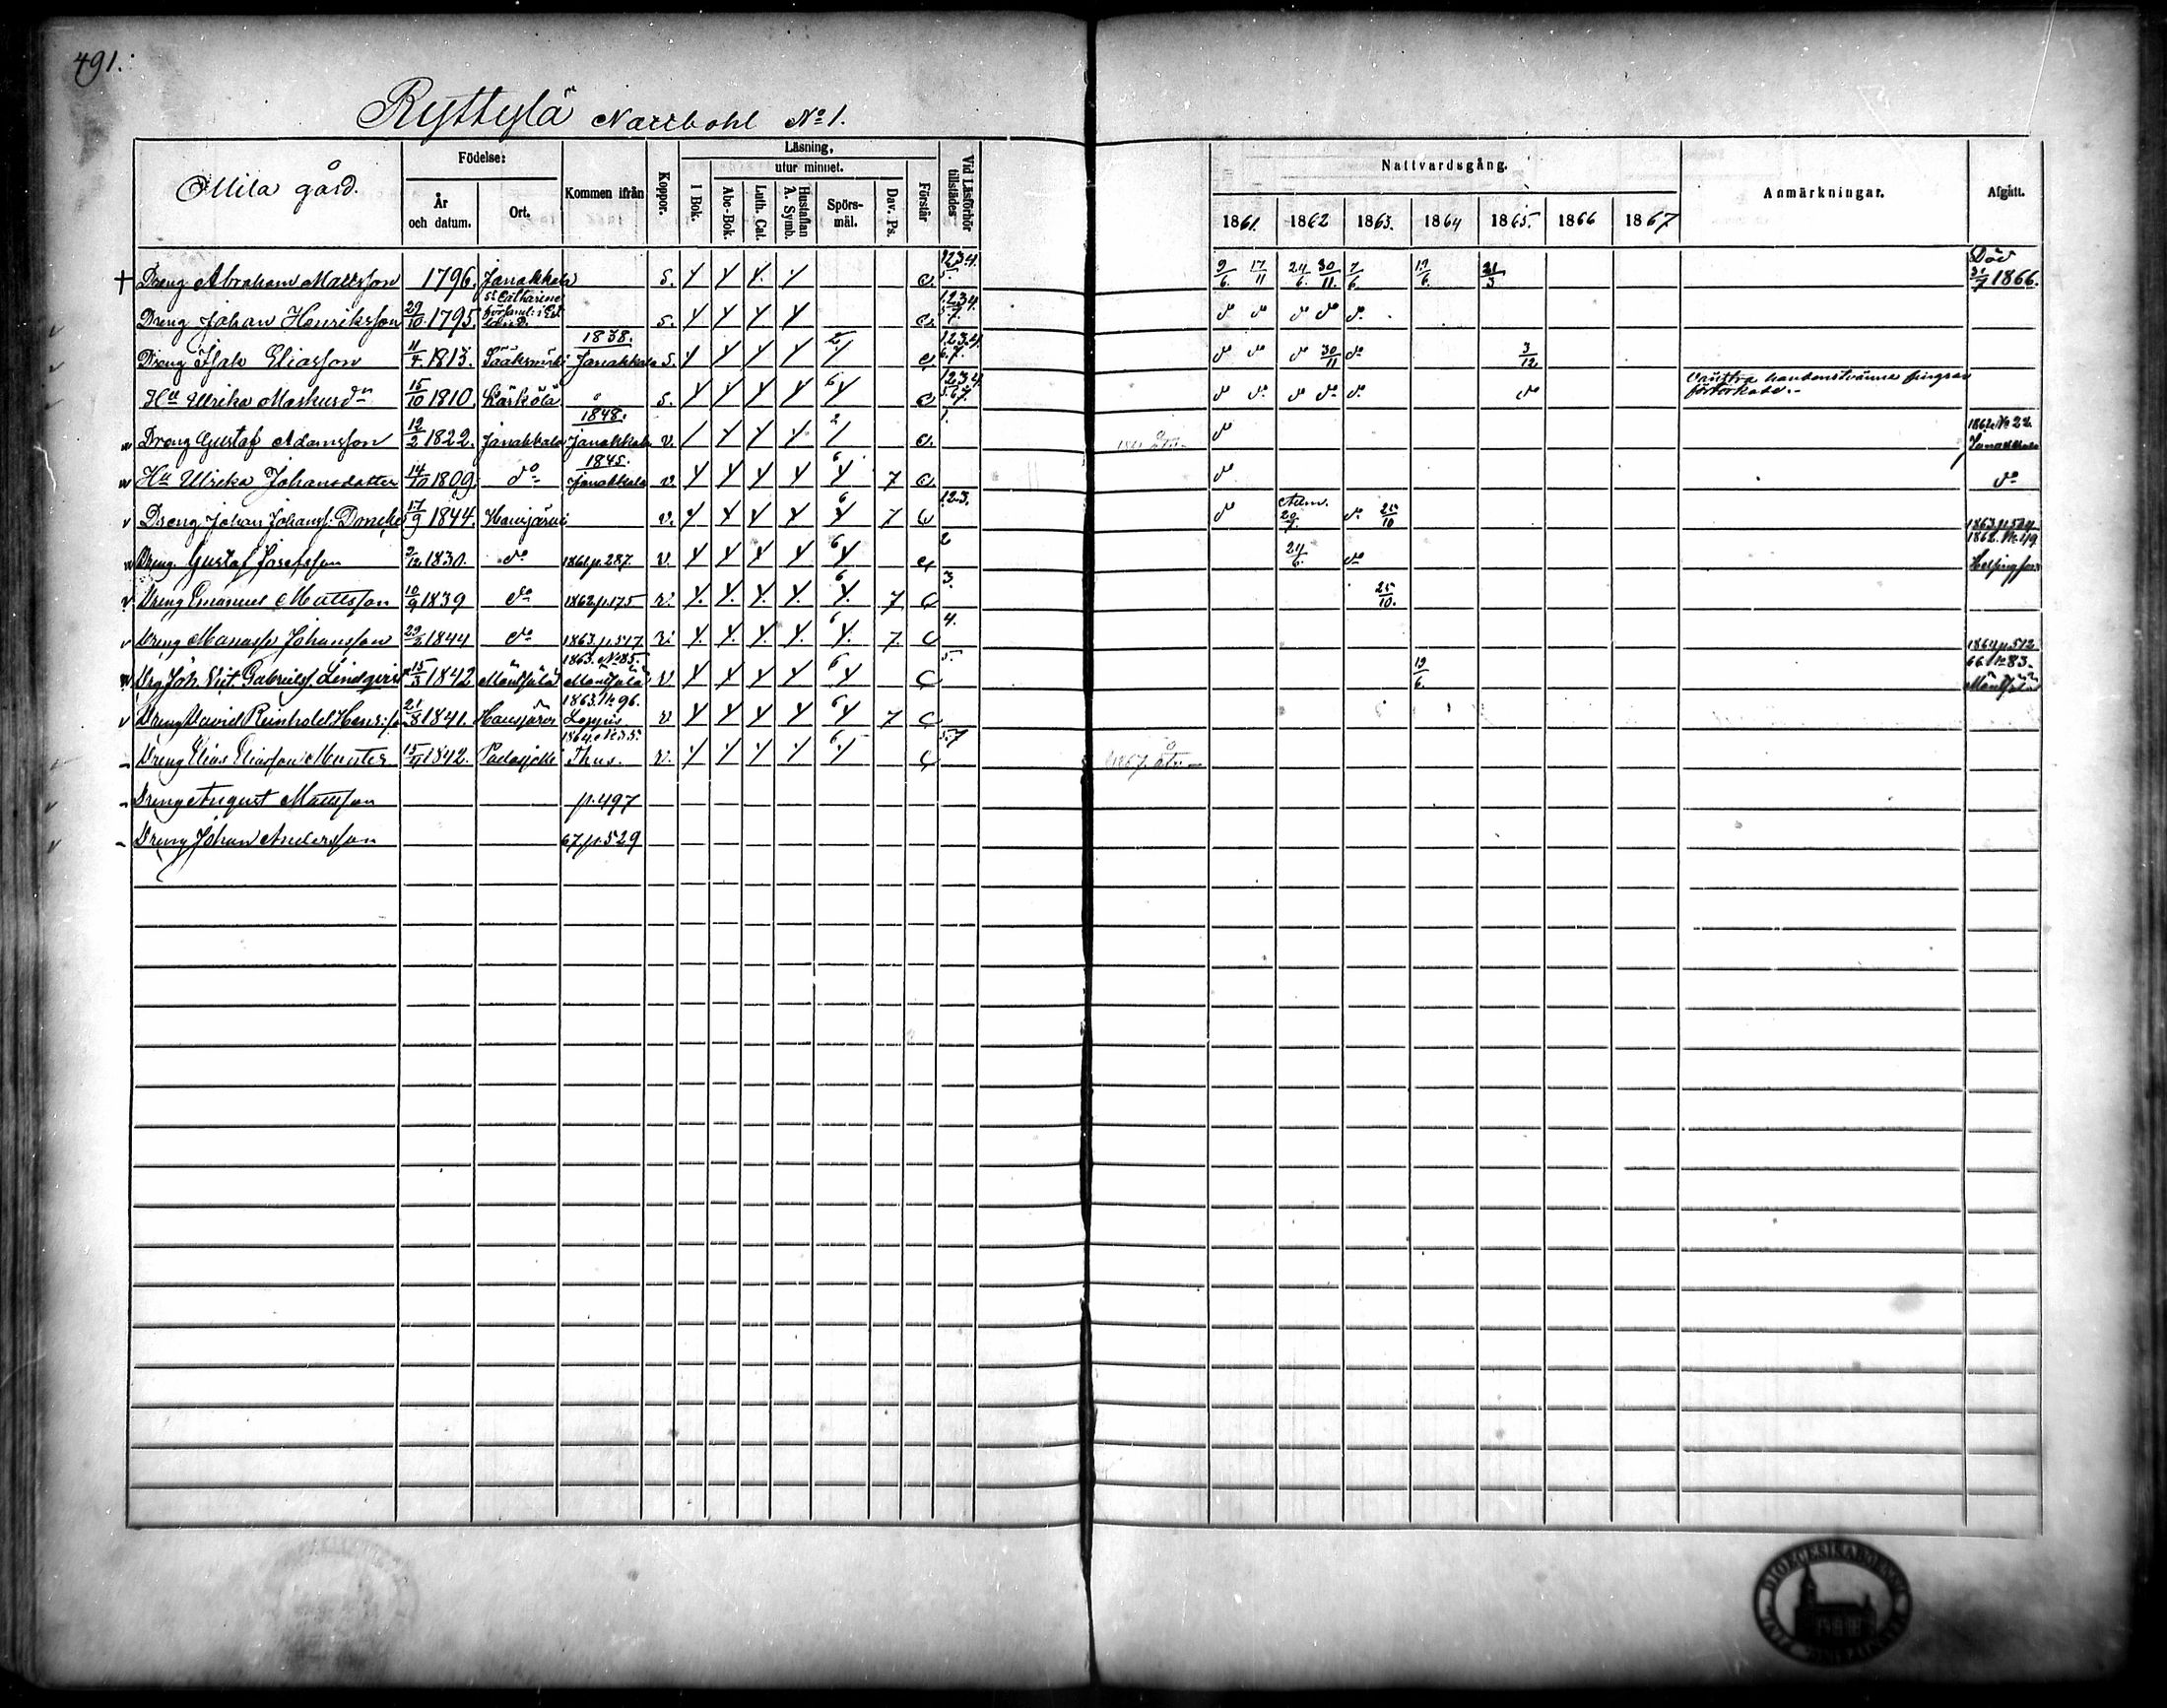 491.
Ryttylä Nattbohl No 1.
Mila gård.
Födelse:
År och datum.
Ort.
Kommen ifrån
Koppor.
Läsning,
utur minnet.
I Bok.
Abc-Bok.
Luth. Cat.
Hustaflan A. Symb.
Spörs-mål.
Dav. Ps.
Förstår
Vid Läsförhör tillstädes
Nattvardsgång.
1861. 1862 1863. 1864 1865. 1866 1867
Anmärkningar.
Afgått.
+ Dreng Abraham Mattsson 1796. Janakkala s. c. 1234. 5. 9/6 17/11 24/6 30/11 7/6 19/6 31/3 Död 31/7 1866.
Dreng Johan Henriksson 29/10 1795. St Catharine s. c. 1.2.3.4. 5.7. do do do do do
Dreng Isak Eliasson 11/4 1813. Sääksmäki 1838. Janakkala s. 2 c 1.2.3.4. 6.7. do do do 30/11 do 3/12
Hu Ulrika Markusdr 15/10 1810. Kärkölä s. 6 c 1.2.3.4. 5.6.7. do do do do do do Vänstra handens tvänne fingrar
förtorkade.
Dreng Gustaf Adamsson 12/2 1822. Janakkala 1848. Janakkala v. 2 c. 1. do 1862 No 22. Janakkala
Hu Ulrika Johansdotter 14/10 1809. do 1845. Janakkala v. 6 7 c. do do
Dreng Johan Johanss. 17/9 1844. Hausjärvi v. 6 7 c 1.2.3. do Adm. 20/7 do 25/10 1863.p.504
Dreng Gustaf Josefsson 2/12 1830. do 1861.p.287. v. 6 c 2 24/6 do 1862. No 119 Helsingfors
Dreng Emanuel Mattsson 10/9 1839 do 1862.p.175 v. 6 7 c 3. 25/10.
Dreng Manasse Johansson 29/2 1844 do 1863.p.547 v. 6 7. c 4. 1864.p.512
Drg Joh. Vict. Gabrielss. Lindqvist 15/3 1842 Mäntsälä 1863. No 85. Mäntsälä v 6 c 5. 19/6. 66 No 83. Mäntsälä
Dreng David Reinhold Henrss. 21/8 1841. Hausjärvi 1863. No 96. Loppis v 6 7 c
Dreng Elias Eliasson Munter 15/11 1842. Padasjoki 1864. No 35. Thus. v. 6 c 5.7
Dreng August Mattsson p.497
Dreng Johan Andersson 67.p.529